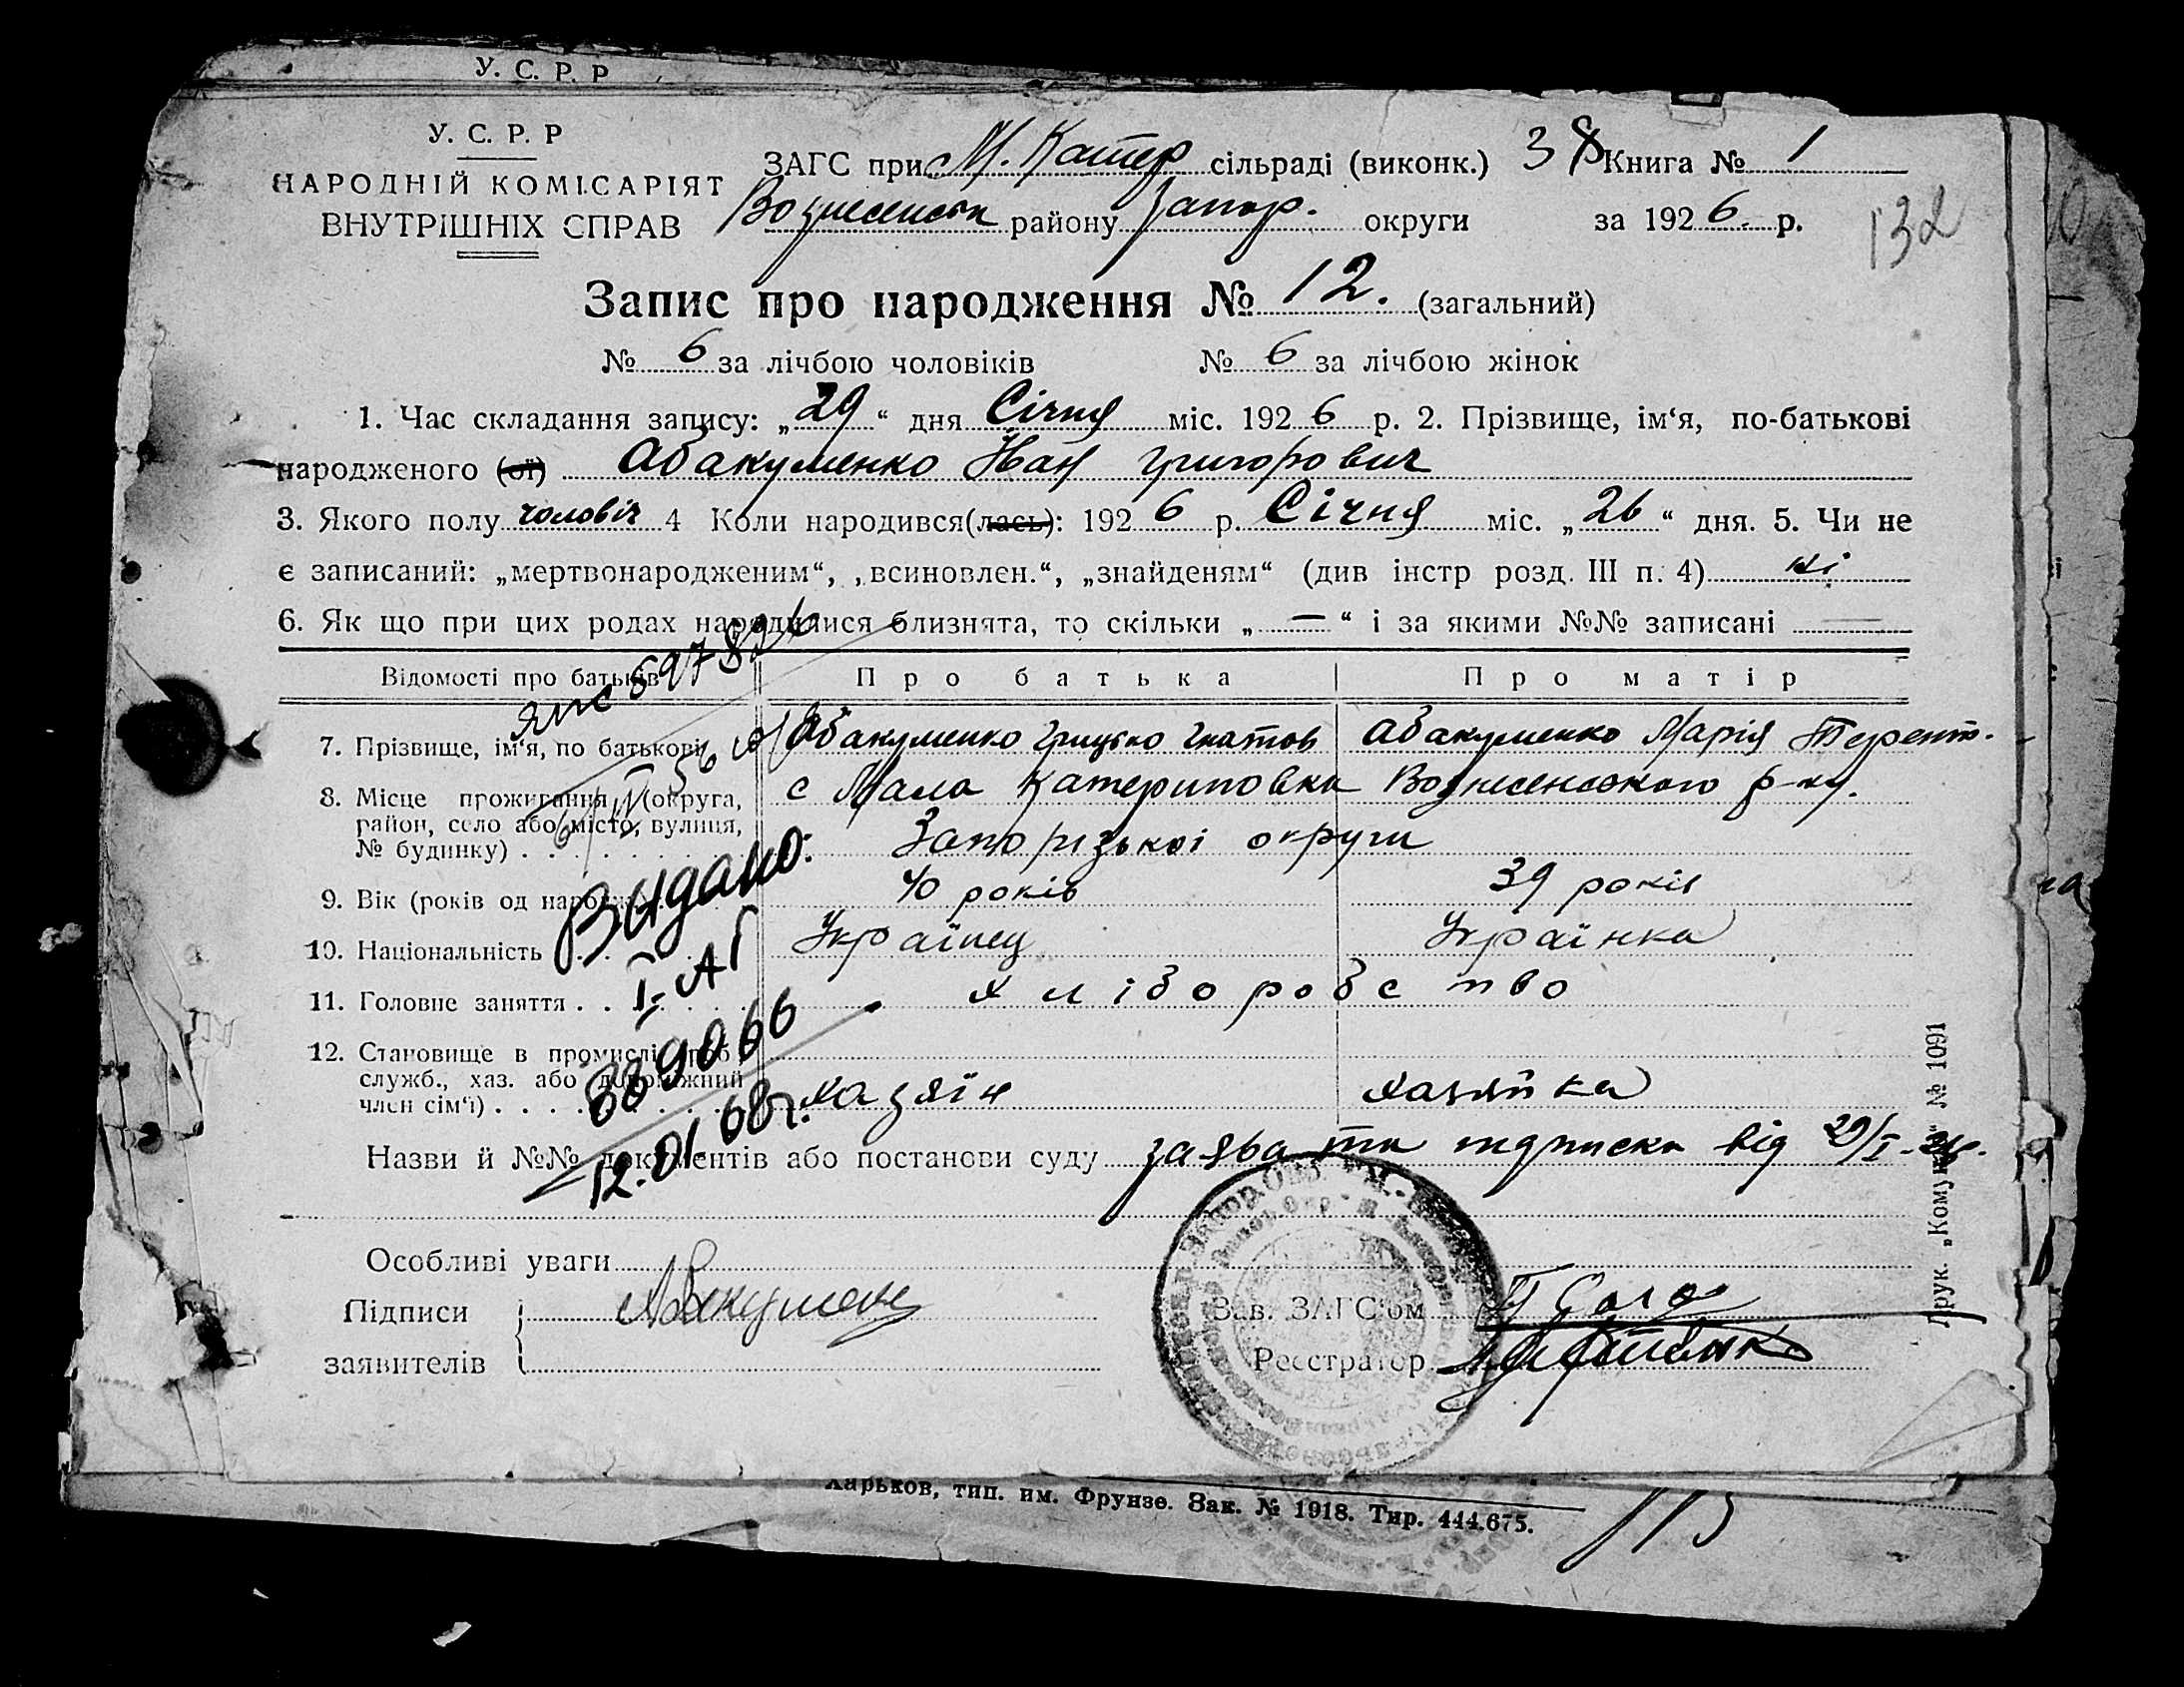 У. С. Р. Р
У. С. Р. Р
НАРОДНІЙ КОМІСАРІЯТ
ВНУТРІШНІХ СПРАВ
ЗАГС при М. Катер сільраді (виконк.) 38 Книга № 1
Вознесенськ району Запор. округи за 1926 р.
132
Запис про народження № 12. (загальний)
№ 6 за лічбою чоловіків № 6 за лічбою жінок
1. Час складання запису: „29“ дня Січня міс. 1926 р. 2. Прізвище, ім‘я, по-батькові
народженого (ої) Абакуменко Йван Григорович
3. Якого полу чоловіч 4 Коли народився(лась): 1926 р. Січня міс. „26“ дня. 5. Чи не
є записаний: „мертвонародженим“, „всиновлен.“, „знайденям“ (див інстр розд. III п. 4) ні
6. Як що при цих родах народилися близнята, то скільки „—“ і за якими №№ записані —
Відомості про батьків Про батька Про матір
7. Прізвище, ім‘я, по батькові Абакуменко Грицько Гнатов Абакуменко Марія Терент.
8. Місце проживання (округа, с Мала Катериновка Вознесенського р-ну.
район, село або місто, вулиця,
№ будинку) Запорізької округи
9. Вік (років од народж.) 40 років 39 років
10. Національність Українец Українка
11. Головне заняття Хліборобство
12. Становище в промислі (роб.,
служб., хаз. або допоміжний
член сім‘ї) Хазяїн Хазяйка
Видано:
I-АГ
889066
12.01.68г.
Назви й №№ документів або постанови суду заява та підписка від 29/I-26р.
Особливі уваги
Підписи
заявителів
Абакуменко
Зав. ЗАГС‘ом
Реєстратор
Друк. „Комун“ № 1091
Харьков, тип. им. Фрунзе. Зак. № 1918. Тир. 444.675.
113